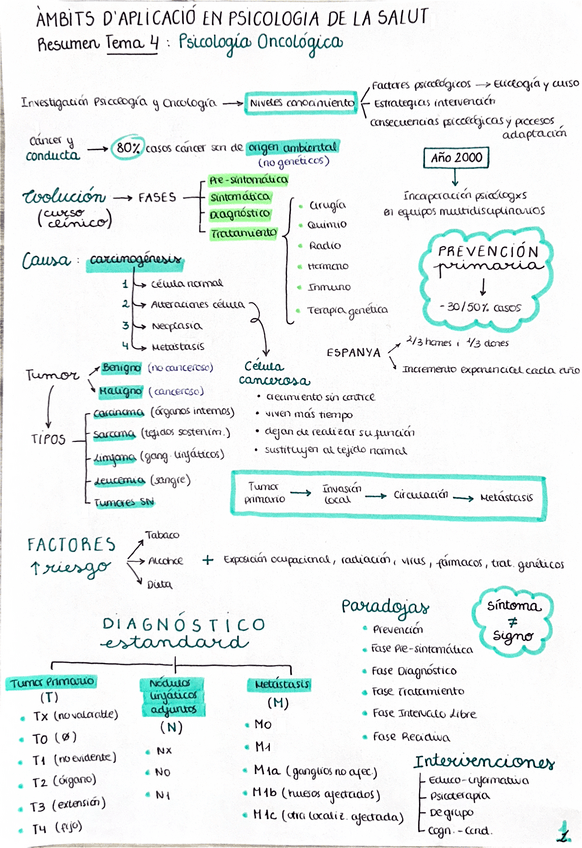 ÀMBITS D'APLICACIÓ EN PSICOLOGIA DE LA SALUT
Resumen Tema 4 : Psicología Oncológica
Investigación Psicología y Oncología → Niveles conocimiento
Factores psicológicos → Etiología y curso
Estrategias intervención
Consecuencias psicológicas y procesos
adaptación
Cáncer y
conducta → 80% casos cáncer son de origen ambiental
(no genéticos)
Año 2000
Incorporación psicólogxs
en equipos multidisciplinarios
Evolución → FASES
(curso
clínico)
Pre-sintomática
Sintomática
Diagnóstico
Tratamiento
Cirugía
Quimio
Radio
Hormono
Inmuno
Terapia genética
PREVENCIÓN
primaria
↓
-30/50% casos
Causa : carcinogénesis
1 → Célula normal
2 → Alteraciones célula
3 → Neoplasia
4 → Metástasis
ESPANYA
2/3 homes i 1/3 dones
Incremento exponencial cada año
Tumor
Benigno (no canceroso)
Maligno (canceroso)
Célula
cancerosa
• crecimiento sin control
• viven más tiempo
• dejan de realizar su función
• sustituyen al tejido normal
TIPOS
Carcinoma (órganos internos)
Sarcoma (tejidos sostenim.)
Linfoma (gang. linfáticos)
Leucemia (sangre)
Tumores SN
Tumor
primario → Invasión
local → Circulación → Metástasis
FACTORES
↑ riesgo
Tabaco
Alcohol
Dieta
+ Exposición ocupacional, radiación, virus, fármacos, trat. genéticos
DIAGNÓSTICO
estandard
Tumor Primario
(T)
• TX (no valorable)
• T0 (Ø)
• T1 (no evidente)
• T2 (órgano)
• T3 (extensión)
• T4 (fijo)
Nódulos
linfáticos
adjuntos
(N)
• NX
• N0
• N1
Metástasis
(M)
• M0
• M1
• M1a (ganglios no afec)
• M1b (huesos afectados)
• M1c (otra localiz. afectada)
Paradojas
• Prevención
• Fase Pre-sintomática
• Fase Diagnóstico
• Fase Tratamiento
• Fase Intervalo Libre
• Fase Recidiva
Síntoma
≠
Signo
Intervenciones
Educo-informativa
Psicoterapia
De grupo
Cogn.-Cond.
1